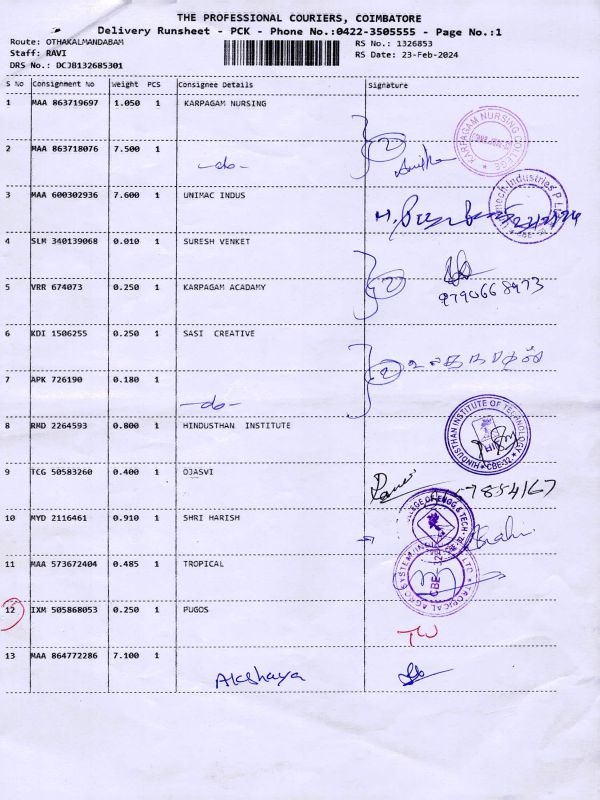 THE PROFESSIONAL COURIERS, COIMBATORE
Delivery Runsheet - PCK - Phone No.:0422-3505555 - Page No.:1
Route: OTHAKALMANDABAM
Staff: RAVI
DRS No.: DCJB132685301
RS No.: 1326853
RS Date: 23-Feb-2024
S No Consignment No Weight PCS Consignee Details Signature
1 MAA 863719697 1.050 1 KARPAGAM NURSING
KARPAGAM NURSING COLLEGE
2 MAA 863718076 7.500 1 -do-
2
3 MAA 600302936 7.600 1 UNIMAC INDUS
4 SLM 340139068 0.010 1 SURESH VENKET
5 VRR 674073 0.250 1 KARPAGAM ACADAMY
2
9790668973
6 KDI 1506255 0.250 1 SASI CREATIVE
7 APK 726190 0.180 1 -do-
2
8 RMD 2264593 0.800 1 HINDUSTHAN INSTITUTE
HINDUSTHAN INSTITUTE OF TECHNOLOGY
CBE-32
9 TCG 50583260 0.400 1 OJASVI
10 MYD 2116461 0.910 1 SHRI HARISH
11 MAA 573672404 0.485 1 TROPICAL
TROPICAL AGRO SYSTEM
12 IXM 505868053 0.250 1 PUGOS
13 MAA 864772286 7.100 1
Akshaya